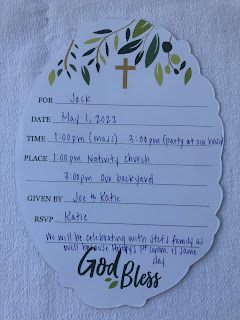 FOR Jack
DATE May 1, 2022
TIME 1:00pm (mass) 3:00pm (party at our house)
PLACE 1:00pm Nativity church
3:00pm Our backyard
GIVEN BY Joe & Katie
RSVP Katie
We will be celebrating with family as
well because 1st comm. is same
day
God Bless